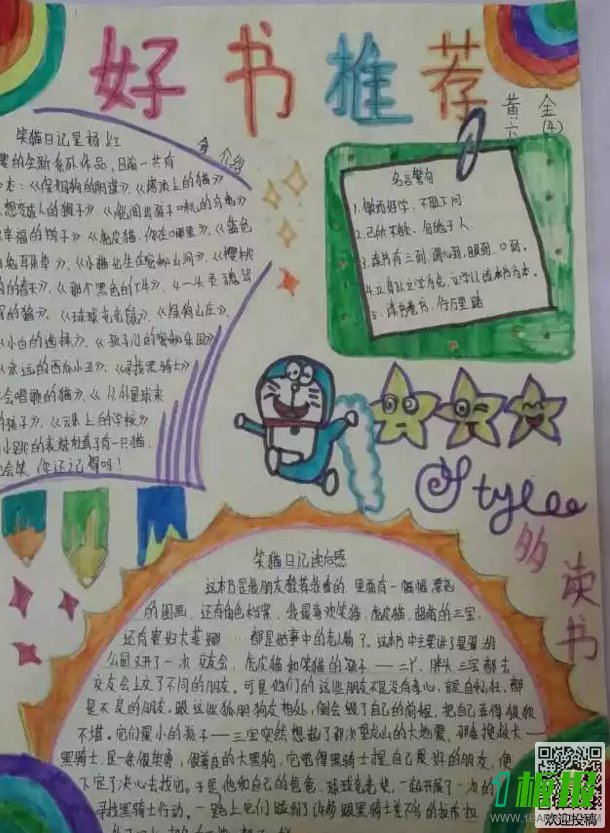 好书推荐
黄
金
六
(4)
介绍
笑猫日记是杨红
的全新系列作品，目前一共有
本：《保姆狗的阴谋》、《塔顶上的猫》
想变成人的猴子》、《能闻出孩子味儿的乌龟》
幸福的鸭子》《虎皮猫，你在哪里》、《蓝色
兔耳朵草》、《小猫出生在秘密山洞》、《樱桃
的春天》《那个黑色的下午》《一头灵魂出
窍的猪》、《球球老老鼠》、《绿狗山庄》、
《小白的选择》、《孩子们的秘密乐园》
《永远的西瓜小丑》、《寻找黑骑士》
会唱歌的猫》、《从外星球来
的孩子》、《云朵上的学校》
小跳的表妹杜真子有一只猫，
会笑，你还记得吗！
名言警句
1.敏而好学，不耻下问
2.己所不欲，勿施于人.
3.读书有三到，谓心到，眼到，口到。
4.立身以立学为先，立学以读书为本。
5.读书卷书，行万里路
Stylee
多读书
笑猫日记读后感
这本书是我朋友推荐我看的，里面有一幅幅漂亮
的图画，还有角色档案，我最喜欢笑猫，虎皮猫，超萌的三宝，
还有蜜妇大菲娜……都是故事中的名人物了。这本书中主要讲了翠湖
公园又开了一次交友会，虎皮猫和笑猫的孩子——二丫，胖头三宝都去
交友会上交了不同的朋友。可是他们的这些朋友不是没有孝心，就是自私狂，都
是不良的朋友。跟这些狐朋狗友相处，倒会毁了自己的前程，把自己弄得狼狈
不堪。它们最小的孩子——三宝突然想起了那次翠龙山的大地震，那条搜救犬——
黑骑士，是一条很英勇，很善良的大黑狗，它觉得黑骑士是自己最好的朋友，便
下定了决心去找它。于是，他和自己的爸爸，球球老老鼠，一起开展了一次的
寻找黑骑士行动。一路上它们碰到了许多跟黑骑士差不多的拉布拉
1板报
欢迎投稿